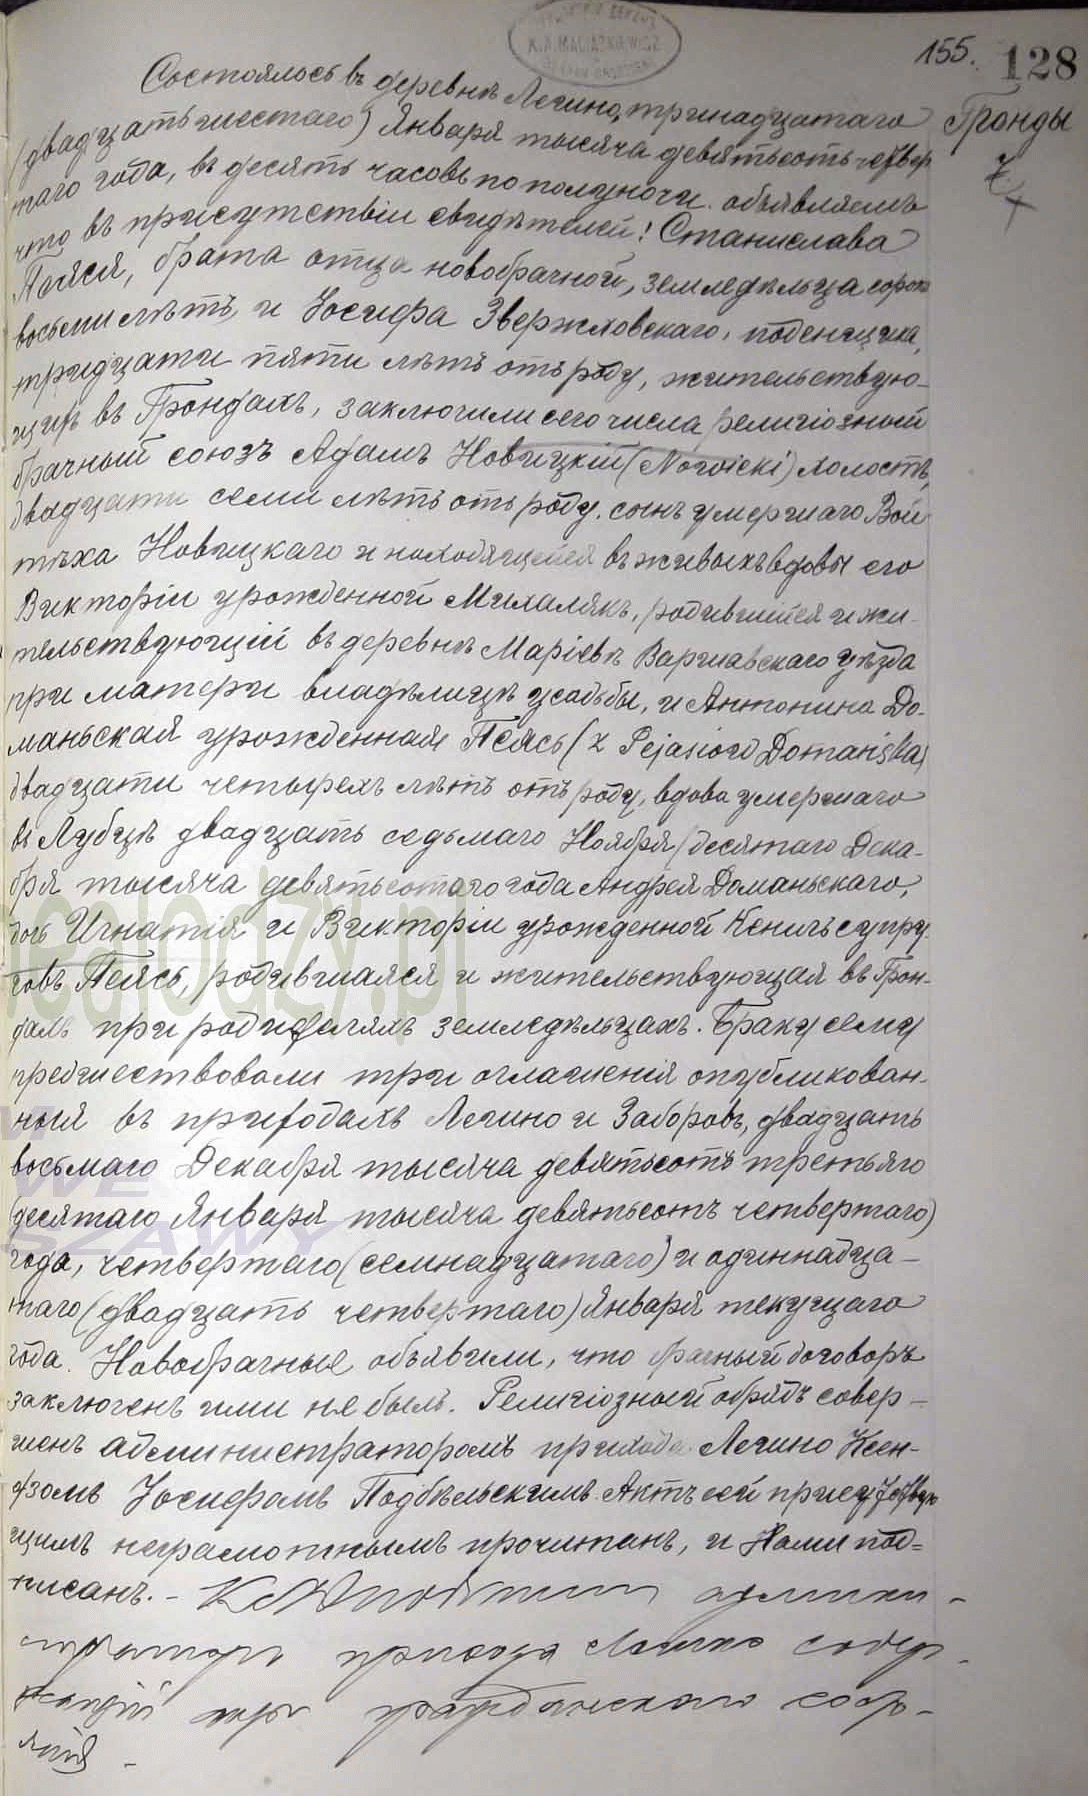 155. 128
Гронды
7
Состоялось въ деревнѣ Лешно, тринадцатаго
(двадцать шестаго) Января тысяча девятьсотъ четвер
таго года, въ десять часовъ по полуночи. объявляемъ
что въ присутствіи свидѣтелей: Станислава
Пеяся, брата отца новобрачной, земледѣльца сорока
восьми лѣтъ, и Іосифа Звержховскаго, поденщика,
тридцати пяти лѣтъ отъ роду, жительствую-
щихъ въ Грондахъ, заключили сего числа религіозный
брачный союзъ Адамъ Новицкій (Nowicki) холостъ,
двадцати семи лѣтъ отъ роду, сынъ умершаго Вой
тѣха Новицкаго и находящейся въ живыхъ вдовы его
Викторіи урожденной Михалякъ, родившійся и жи-
тельствующій въ деревнѣ Маріевѣ Варшавскаго уѣзда
при матери владѣлицѣ усадьбы, и Антонина До-
маньская урожденная Пеясь (z Pejasiow Domańska)
двадцати четырехъ лѣтъ отъ роду, вдова умершаго
въ Лубцѣ двадцать седьмаго Ноября (десятаго Дека-
бря тысяча девятьсотаго года Андрея Доманьскаго,
дочь Игнатія и Викторіи урожденной Кеничъ супру
говъ Пеясь, родившаяся и жительствующая въ Грон-
дахъ при родителяхъ земледѣльцахъ. Браку сему
предшествовали три оглашенія опубликован-
ныя въ приходахъ Лешно и Заборовъ, двадцать
восьмаго Декабря тысяча девятьсотъ третьяго
(десятаго Января тысяча девятьсотъ четвертаго)
года, четвертаго (семнадцатаго) и одиннадца-
таго (двадцать четвертаго) Января текущаго
года. Новобрачные объявили, что брачный договоръ
заключенъ ими не былъ. Религіозный обрядъ совер-
шенъ администраторомъ прихода Лешно Ксен-
дзомъ Іосифомъ Подбѣльскимъ. Актъ сей присутствую
щимъ неграмотнымъ прочитанъ, и Нами под=
писанъ. - админи-
страторъ прихода Лешно содер-
жащій акты гражданскаго состо-
янія -